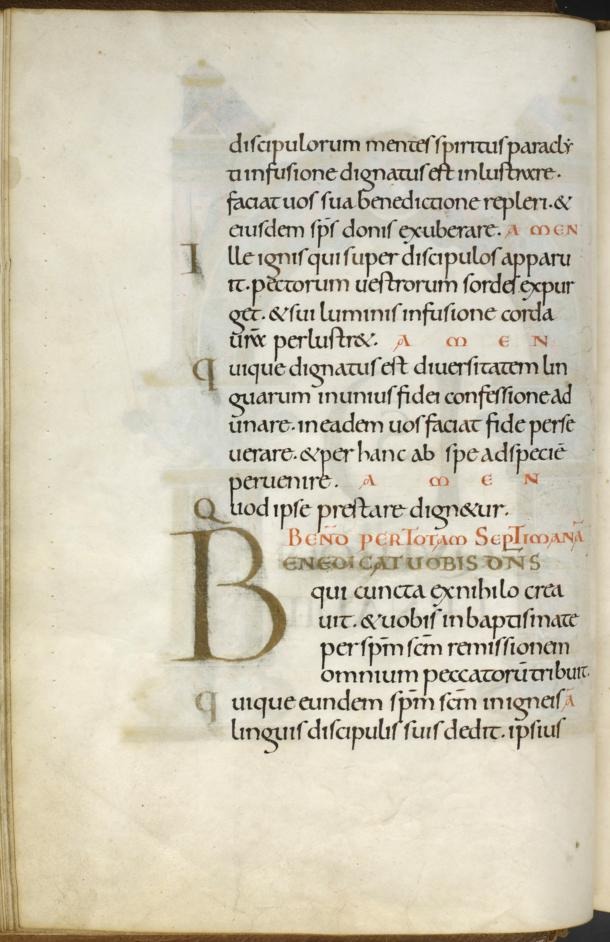 discipulorum mentes spiritus paracly
ti infusione dignatus est inlustrare.
faciat uos sua benedictione repleri. &
eiusdem sp̅s donis exuberare. AMEN
Ille ignis qui super discipulos apparu
it. pectorum uestrorum sordes expur
get. & sui luminis infusione corda
ur̅a perlustr&. AMEN
Quique dignatus est diuersitatem lin
guarum in unius fidei confessione ad
unare. in eadem uos faciat fide perse
uerare. & per hanc ab spe ad specie̅
peruenire. AMEN
Quod ipse prestare dign&ur.
BEND̅ PER TOTAM SEPTIMANA̅
BENEDICAT UOBIS DN̅S
qui cuncta ex nihilo crea
uit. & uobis in baptismate
per sp̅m sc̅m remissionem
omnium peccatoru̅ tribuit.
quique eundem sp̅m sc̅m in igneis A̅
linguis discipulis suis dedit. ipsius